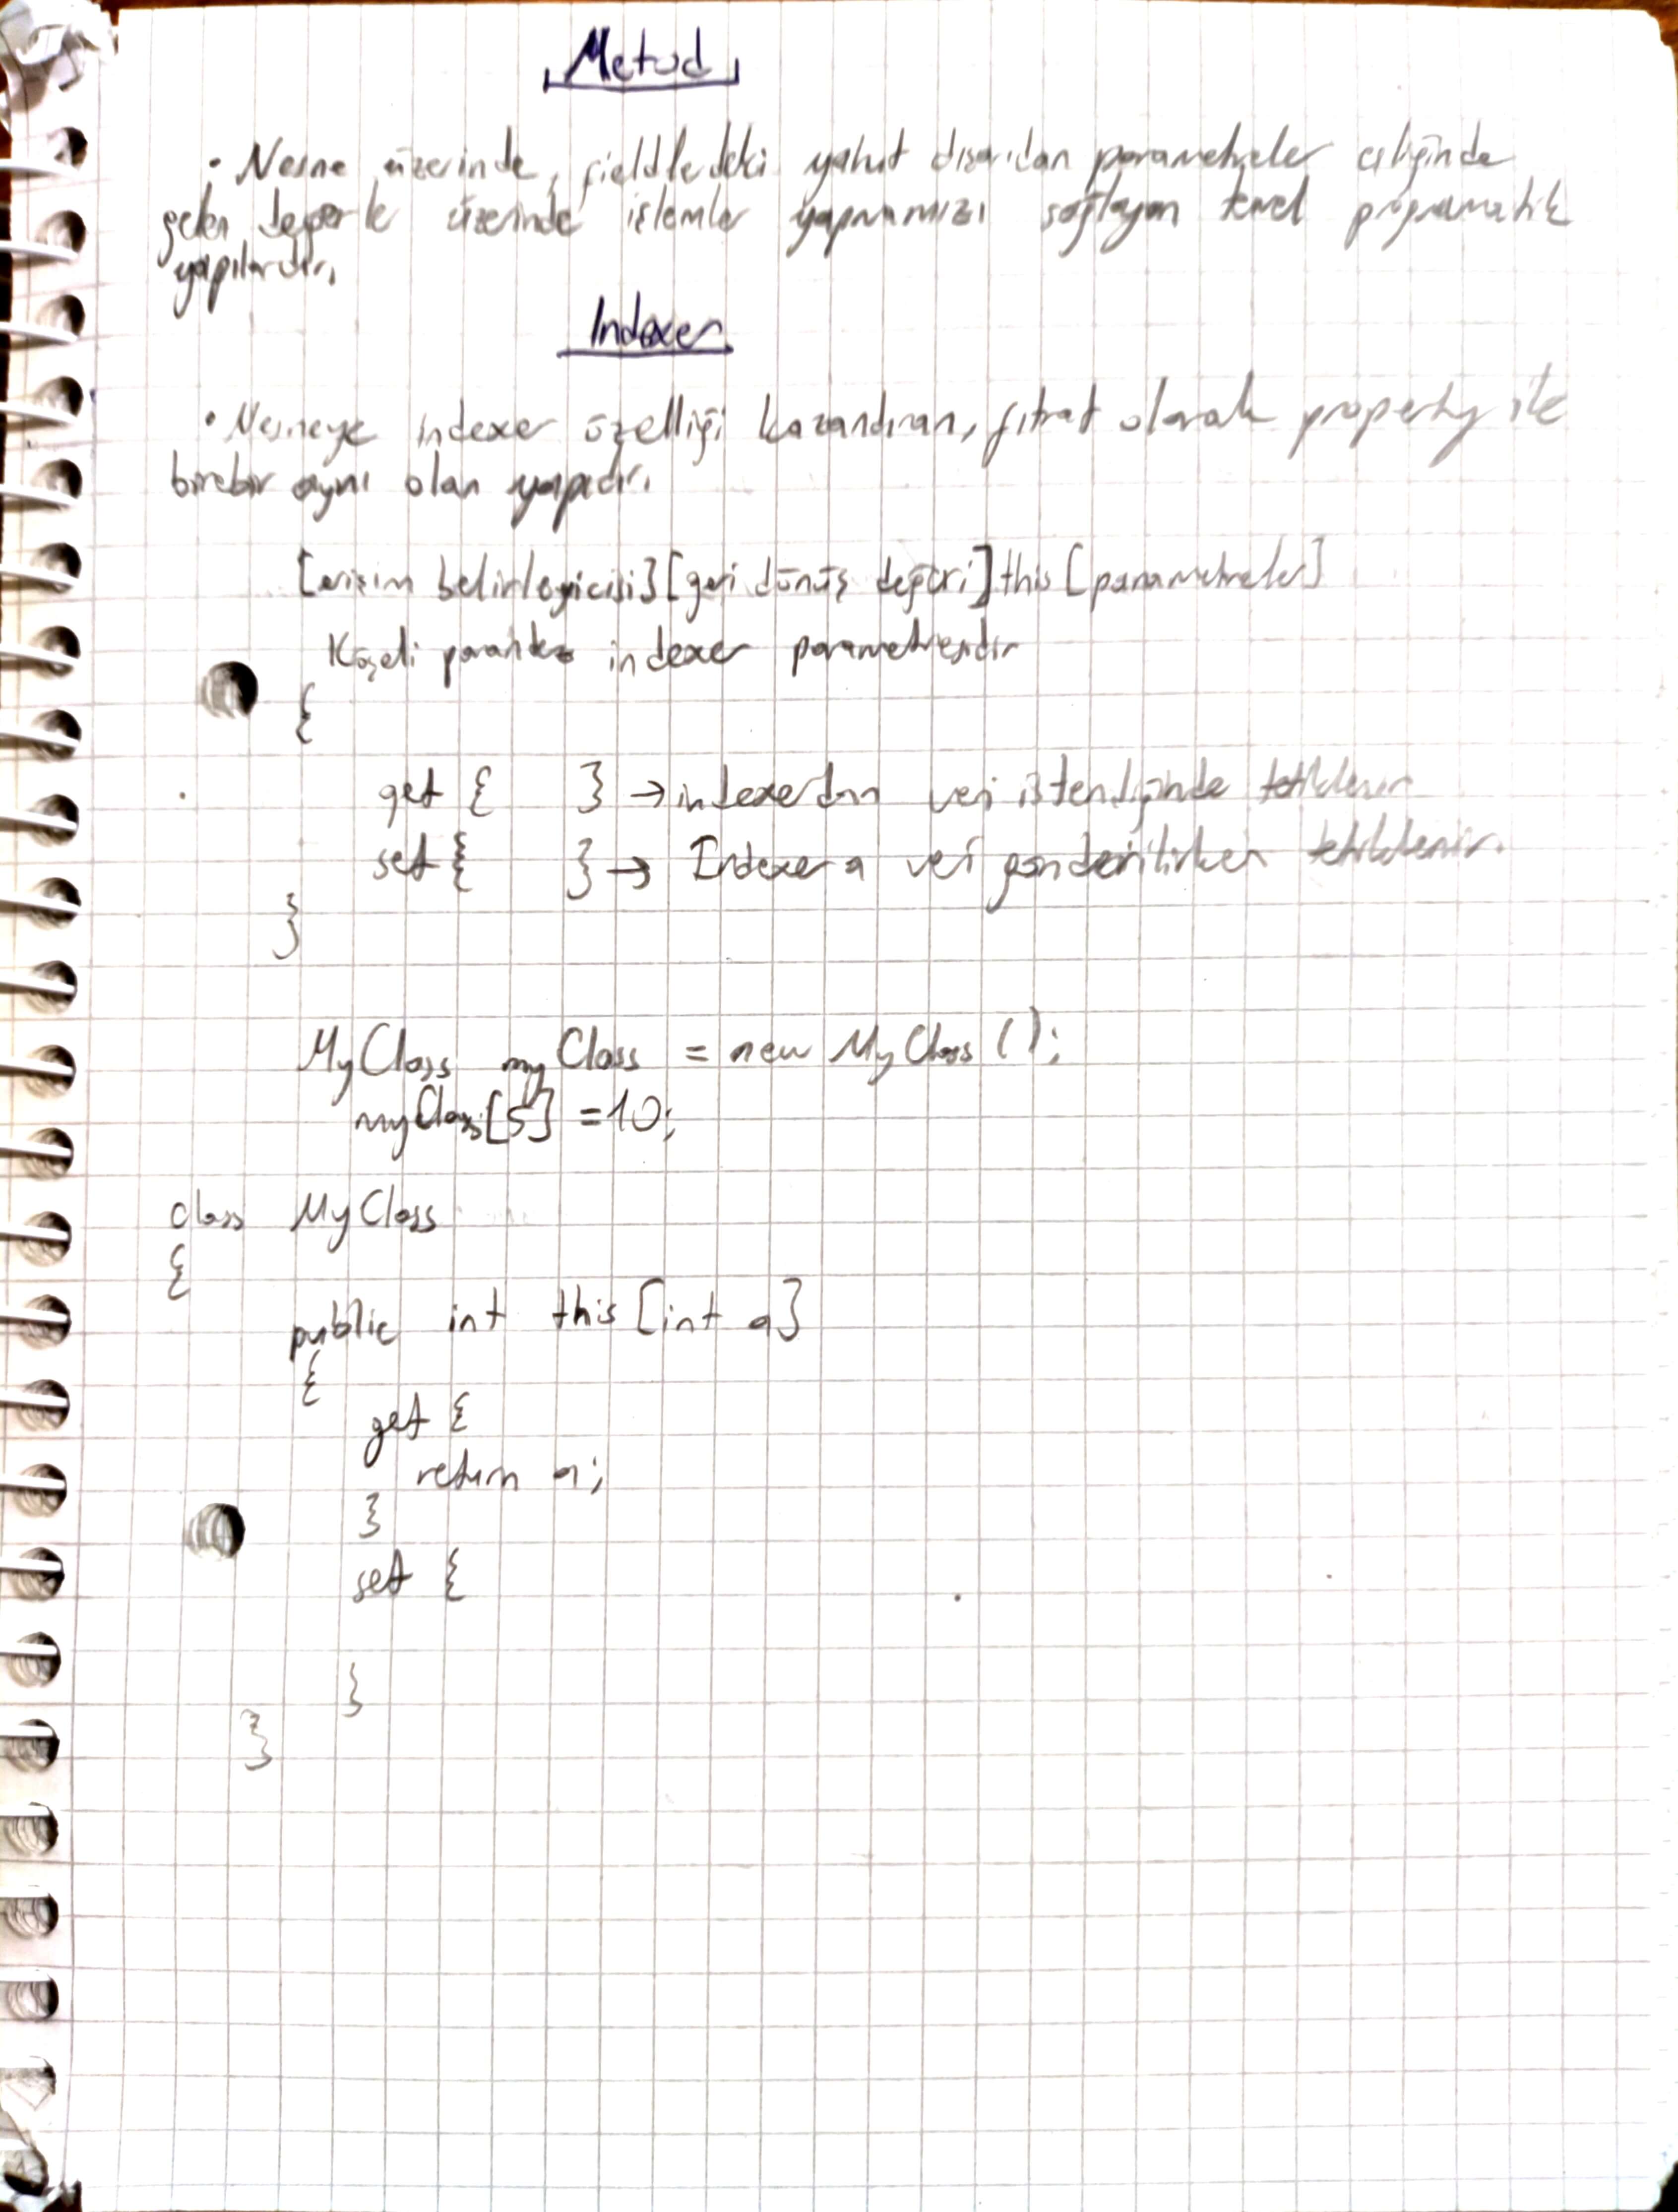 Metod
• Nesne üzerinde, fieldlerdeki yahut dışarıdan parametreler eşliğinde
gelen değerler üzerinde işlemler yapmamızı sağlayan temel programatik
yapılardır.
Indexer
• Nesneye indexer özelliği kazandıran, fıtrat olarak property ile
birebir aynı olan yapıdır.
[erişim belirleyicisi][geri dönüş değeri]this[parametreler]
Köşeli parantez indexer parametresidir
{
get { } → indexerdan veri istendiğinde tetiklenir
set { } → Indexer a veri gönderilirken tetiklenir.
}
MyClass myClass = new MyClass();
myClass[5] = 10;
class MyClass
{
public int this [int a]
{
get {
return a;
}
set {
}
}